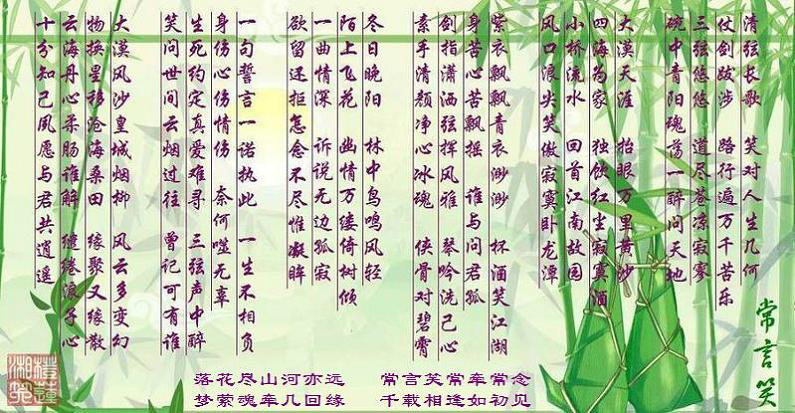 常言笑
清弦长歌 笑对人生几何
仗剑故涉 路行遍万千苦乐
三弦悠悠 道尽苍凉寂寥
碗中青阳魂荡一醉问天地
大漠天涯 抬眼万里黄沙
四海为家 独饮红尘寂寞酒
小桥流水 回首江南故园
风口浪尖笑傲寂寞卧龙潭
紫衣飘飘青衣渺渺 杯酒笑江湖
身苦心苦飘摇 谁与问君孤
剑指潇洒弦挥风雅 琴吟洗己心
素手清颜净心冰魂 侠骨对碧霄
冬日晚阳 林中鸟鸣风轻
陌上飞花 幽情万缕倚树倾
一曲情深 诉说无边孤寂
欲留还拒怎念不尽惟凝眸
一句誓言一诺执此 一生不相负
身伤心伤情伤 奈何噬无辜
生死约定真爱难寻 三弦声中醉
笑问世间云烟过往 曾记可有谁
大漠风沙皇城烟柳 风云多变幻
物换星移沧海桑田 缘聚又缘散
云海丹心柔肠谁解 缱绻浪子心
十分知己夙愿与君共逍遥
落花尽山河亦远 常言笑常牵常念
梦萦魂牵几回缘 千载相逢如初见